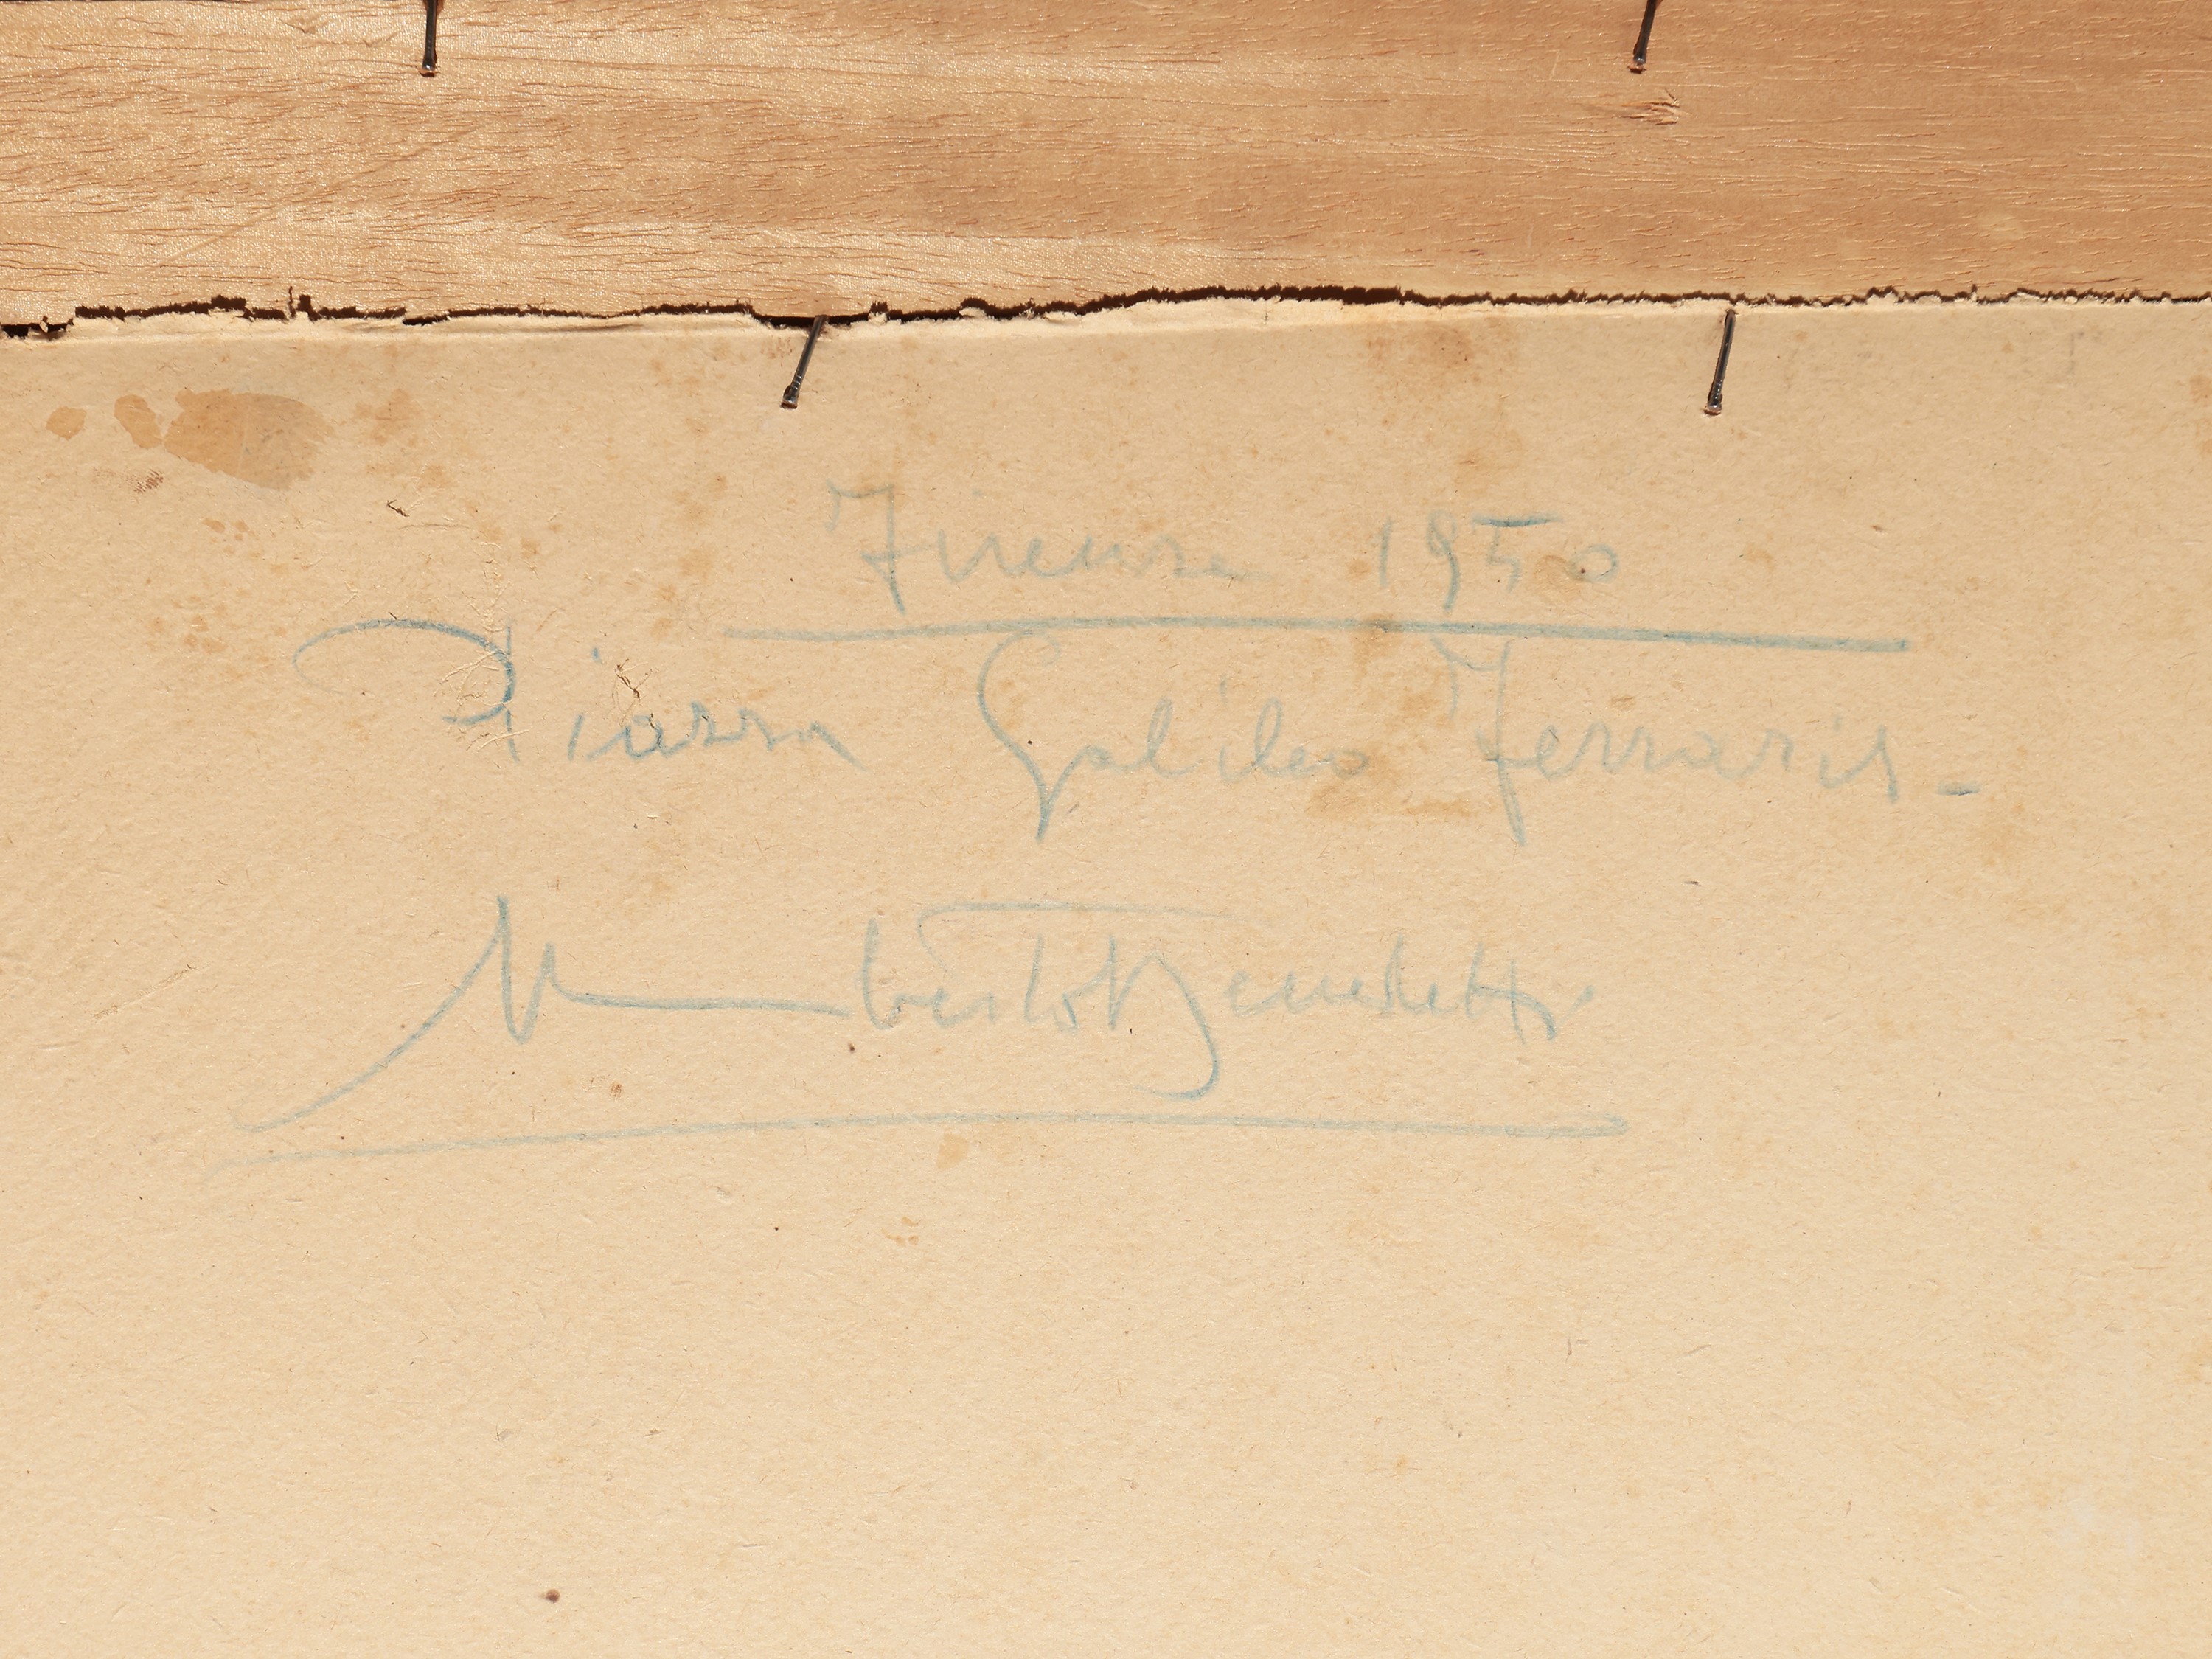 Firenze 1950
Piazza Galileo Ferraris -
Umberto Benedetti